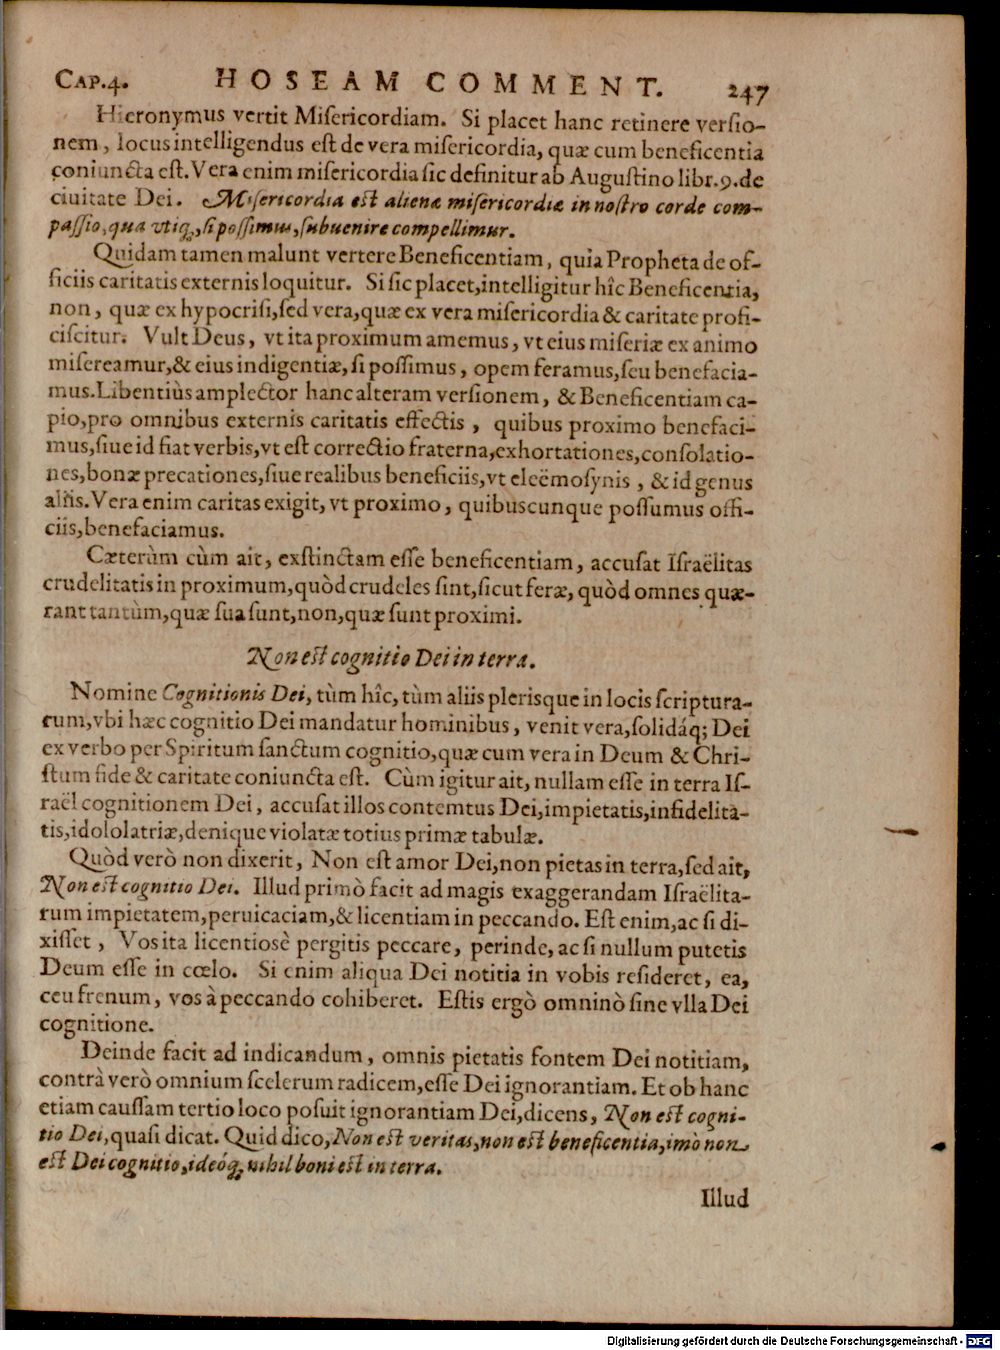 CAP.4. HOSEAM COMMENT. 247
Hieronymus vertit Misericordiam. Si placet hanc retinere versio-
nem, locus intelligendus est de vera misericordia, quæ cum beneficentia
coniuncta est. Vera enim misericordia sic definitur ab Augustino libr.9.de
ciuitate Dei. Misericordia est alienæ misericordiæ in nostro corde com-
passio, qua vtiq;, si possimus, subuenire compellimur.
Quidam tamen malunt vertere Beneficentiam, quia Propheta de of-
ficiis caritatis externis loquitur. Si sic placet, intelligitur hîc Beneficentia,
non, quæ ex hypocrisi, sed vera, quæ ex vera misericordia & caritate profi-
ciscitur. Vult Deus, vt ita proximum amemus, vt eius miseriæ ex animo
misereamur, & eius indigentiæ, si possimus, opem feramus, seu benefacia-
mus. Libentiùs amplector hanc alteram versionem, & Beneficentiam ca-
pio, pro omnibus externis caritatis effectis, quibus proximo benefaci-
mus, siue id fiat verbis, vt est correctio fraterna, exhortationes, consolatio-
nes, bonæ precationes, siue realibus beneficiis, vt eleëmosynis, & id genus
aliis. Vera enim caritas exigit, vt proximo, quibuscunque possumus offi-
ciis, benefaciamus.
Cæterùm cùm ait, exstinctam esse beneficentiam, accusat Israëlitas
crudelitatis in proximum, quòd crudeles sint, sicut feræ, quòd omnes quæ-
rant tantùm, quæ sua sunt, non, quæ sunt proximi.
Non est cognitio Dei in terra.
Nomine Cognitionis Dei, tùm hîc, tùm aliis plerisque in locis scriptura-
rum, vbi hæc cognitio Dei mandatur hominibus, venit vera, solidáq; Dei
ex verbo per Spiritum sanctum cognitio, quæ cum vera in Deum & Chri-
stum fide & caritate coniuncta est. Cùm igitur ait, nullam esse in terra Is-
raël cognitionem Dei, accusat illos contemtus Dei, impietatis, infidelita-
tis, idololatriæ, denique violatæ totius primæ tabulæ.
Quòd verò non dixerit, Non est amor Dei, non pietas in terra, sed ait,
Non est cognitio Dei. Illud primò facit ad magis exaggerandam Israëlita-
rum impietatem, peruicaciam, & licentiam in peccando. Est enim, ac si di-
xisset, Vos ita licentiosè pergitis peccare, perinde, ac si nullum putetis
Deum esse in cœlo. Si enim aliqua Dei notitia in vobis resideret, ea,
ceu frenum, vos à peccando cohiberet. Estis ergò omninò sine vlla Dei
cognitione.
Deinde facit ad indicandum, omnis pietatis fontem Dei notitiam,
contrà verò omnium scelerum radicem, esse Dei ignorantiam. Et ob hanc
etiam caussam tertio loco posuit ignorantiam Dei, dicens, Non est cogni-
tio Dei, quasi dicat. Quid dico, Non est veritas, non est beneficentia, imò non
est Dei cognitio, ideóq; nihil boni est in terra.
Illud
Digitalisierung gefördert durch die Deutsche Forschungsgemeinschaft - DFG